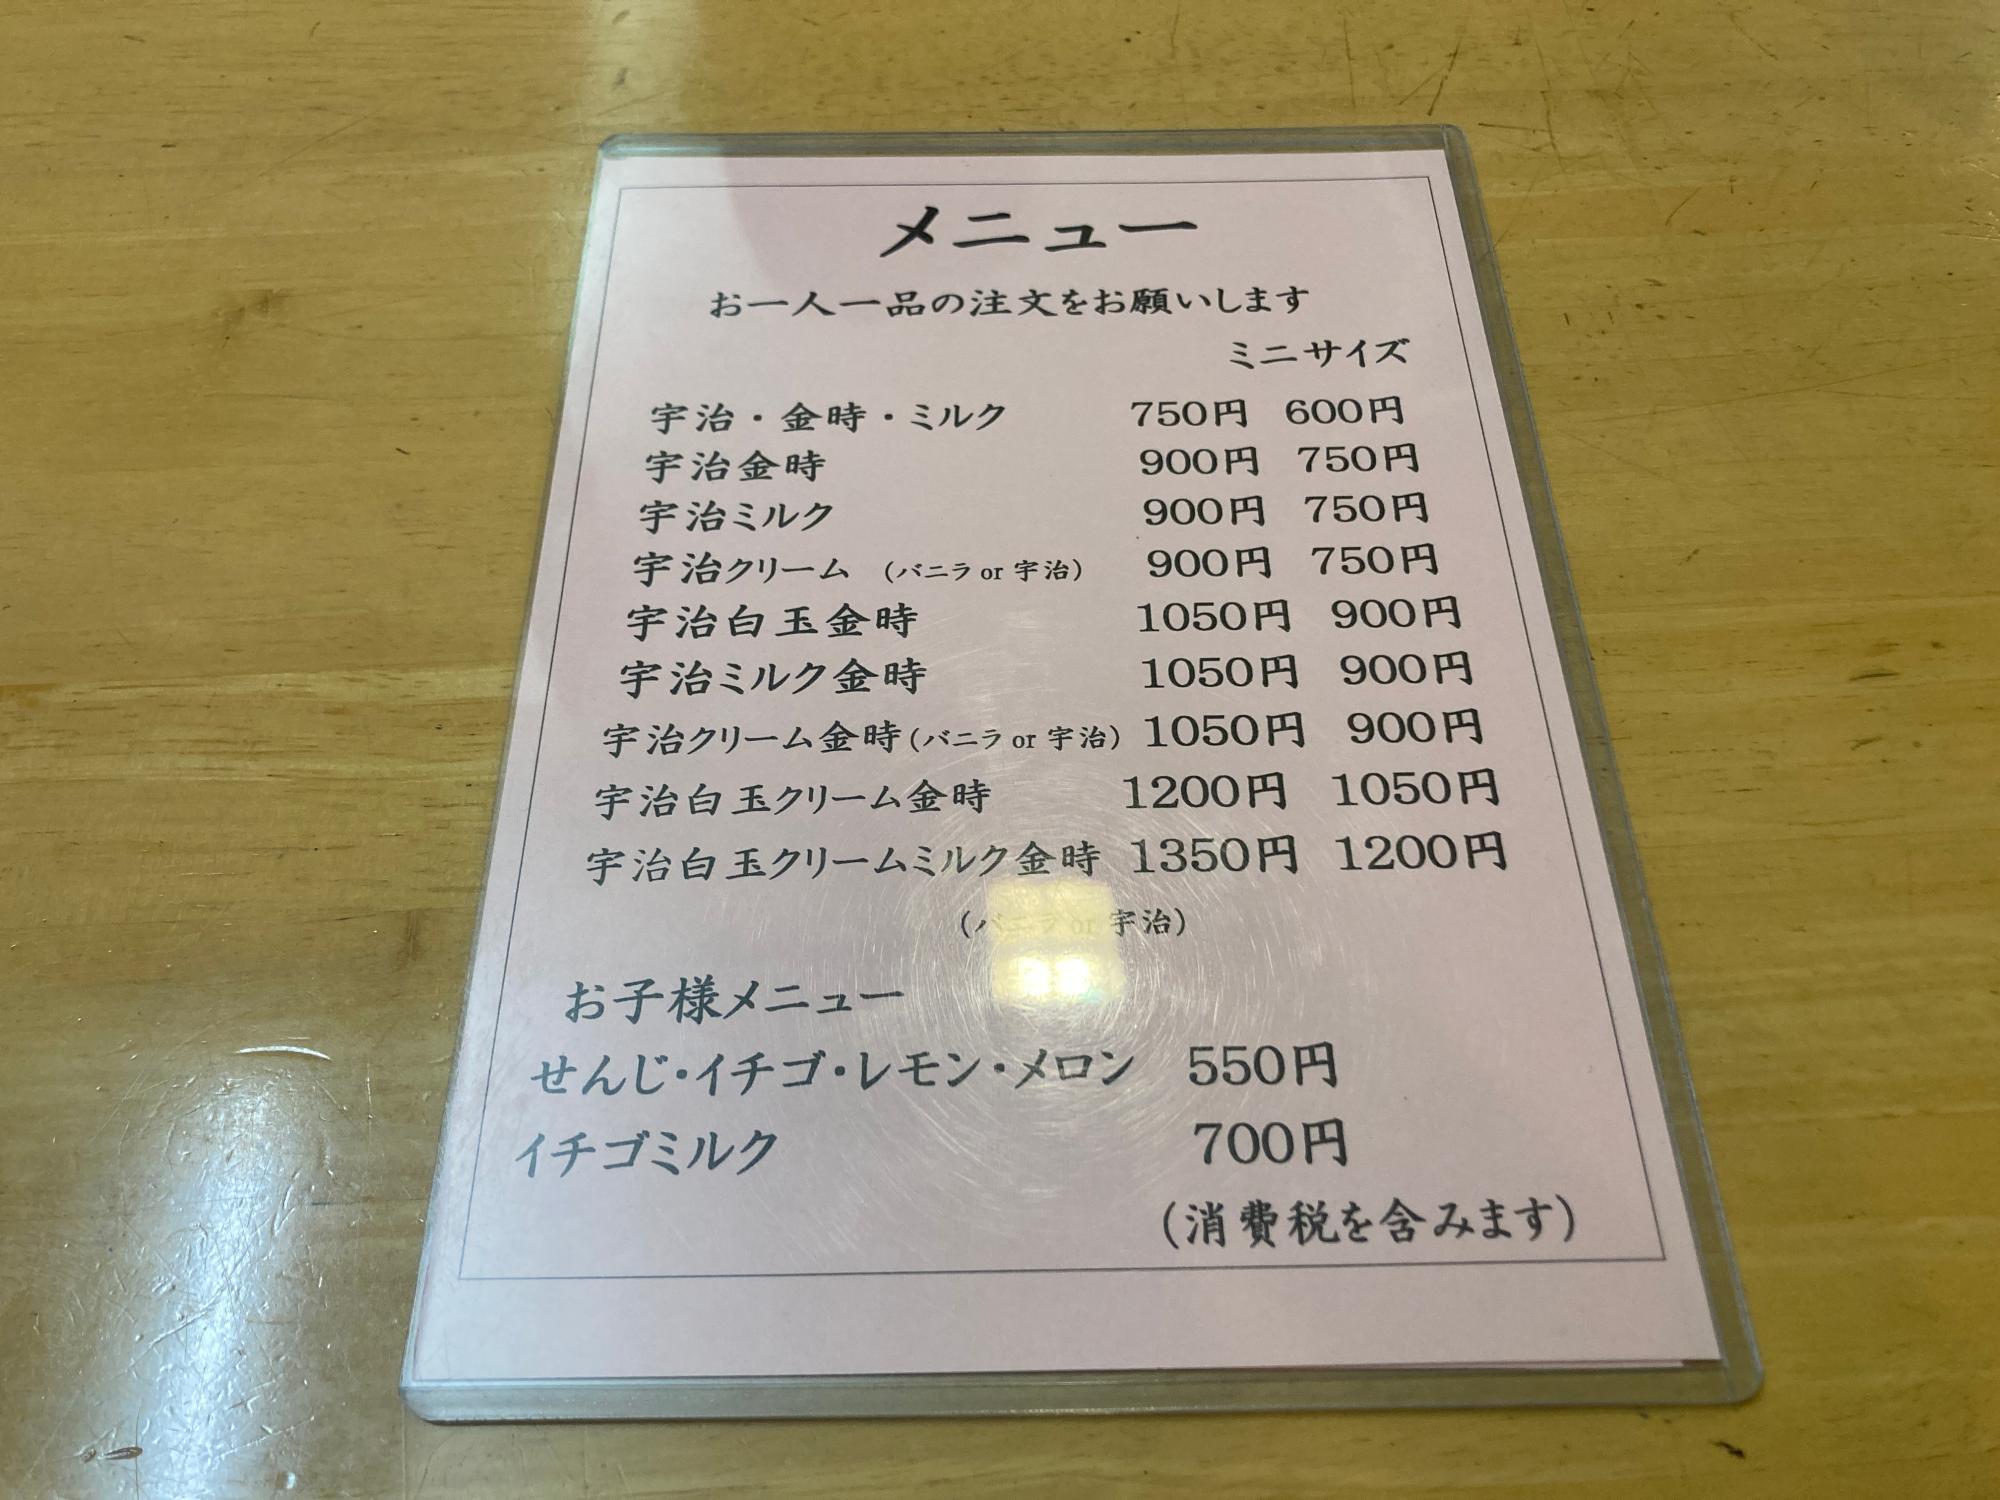 メニュー
お一人一品の注文をお願いします
ミニサイズ
宇治・金時・ミルク 750円 600円
宇治金時 900円 750円
宇治ミルク 900円 750円
宇治クリーム (バニラ or 宇治) 900円 750円
宇治白玉金時 1050円 900円
宇治ミルク金時 1050円 900円
宇治クリーム金時(バニラ or 宇治) 1050円 900円
宇治白玉クリーム金時 1200円 1050円
宇治白玉クリームミルク金時 1350円 1200円
(バニラ or 宇治)
お子様メニュー
せんじ・イチゴ・レモン・メロン 550円
イチゴミルク 700円
(消費税を含みます)